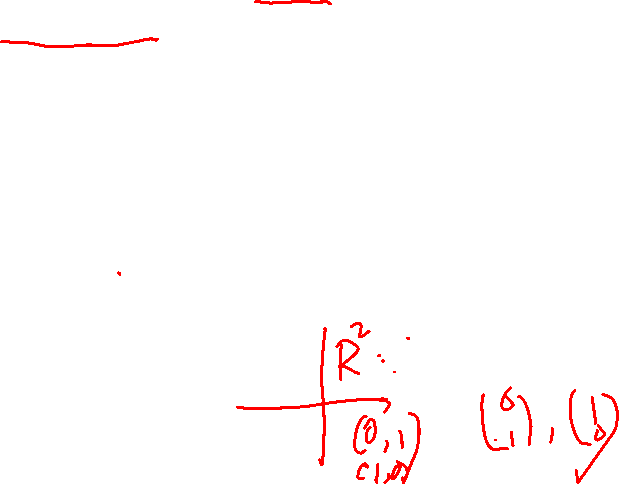 R²
(0,1)
(1,0)
(0 1), (1 0)